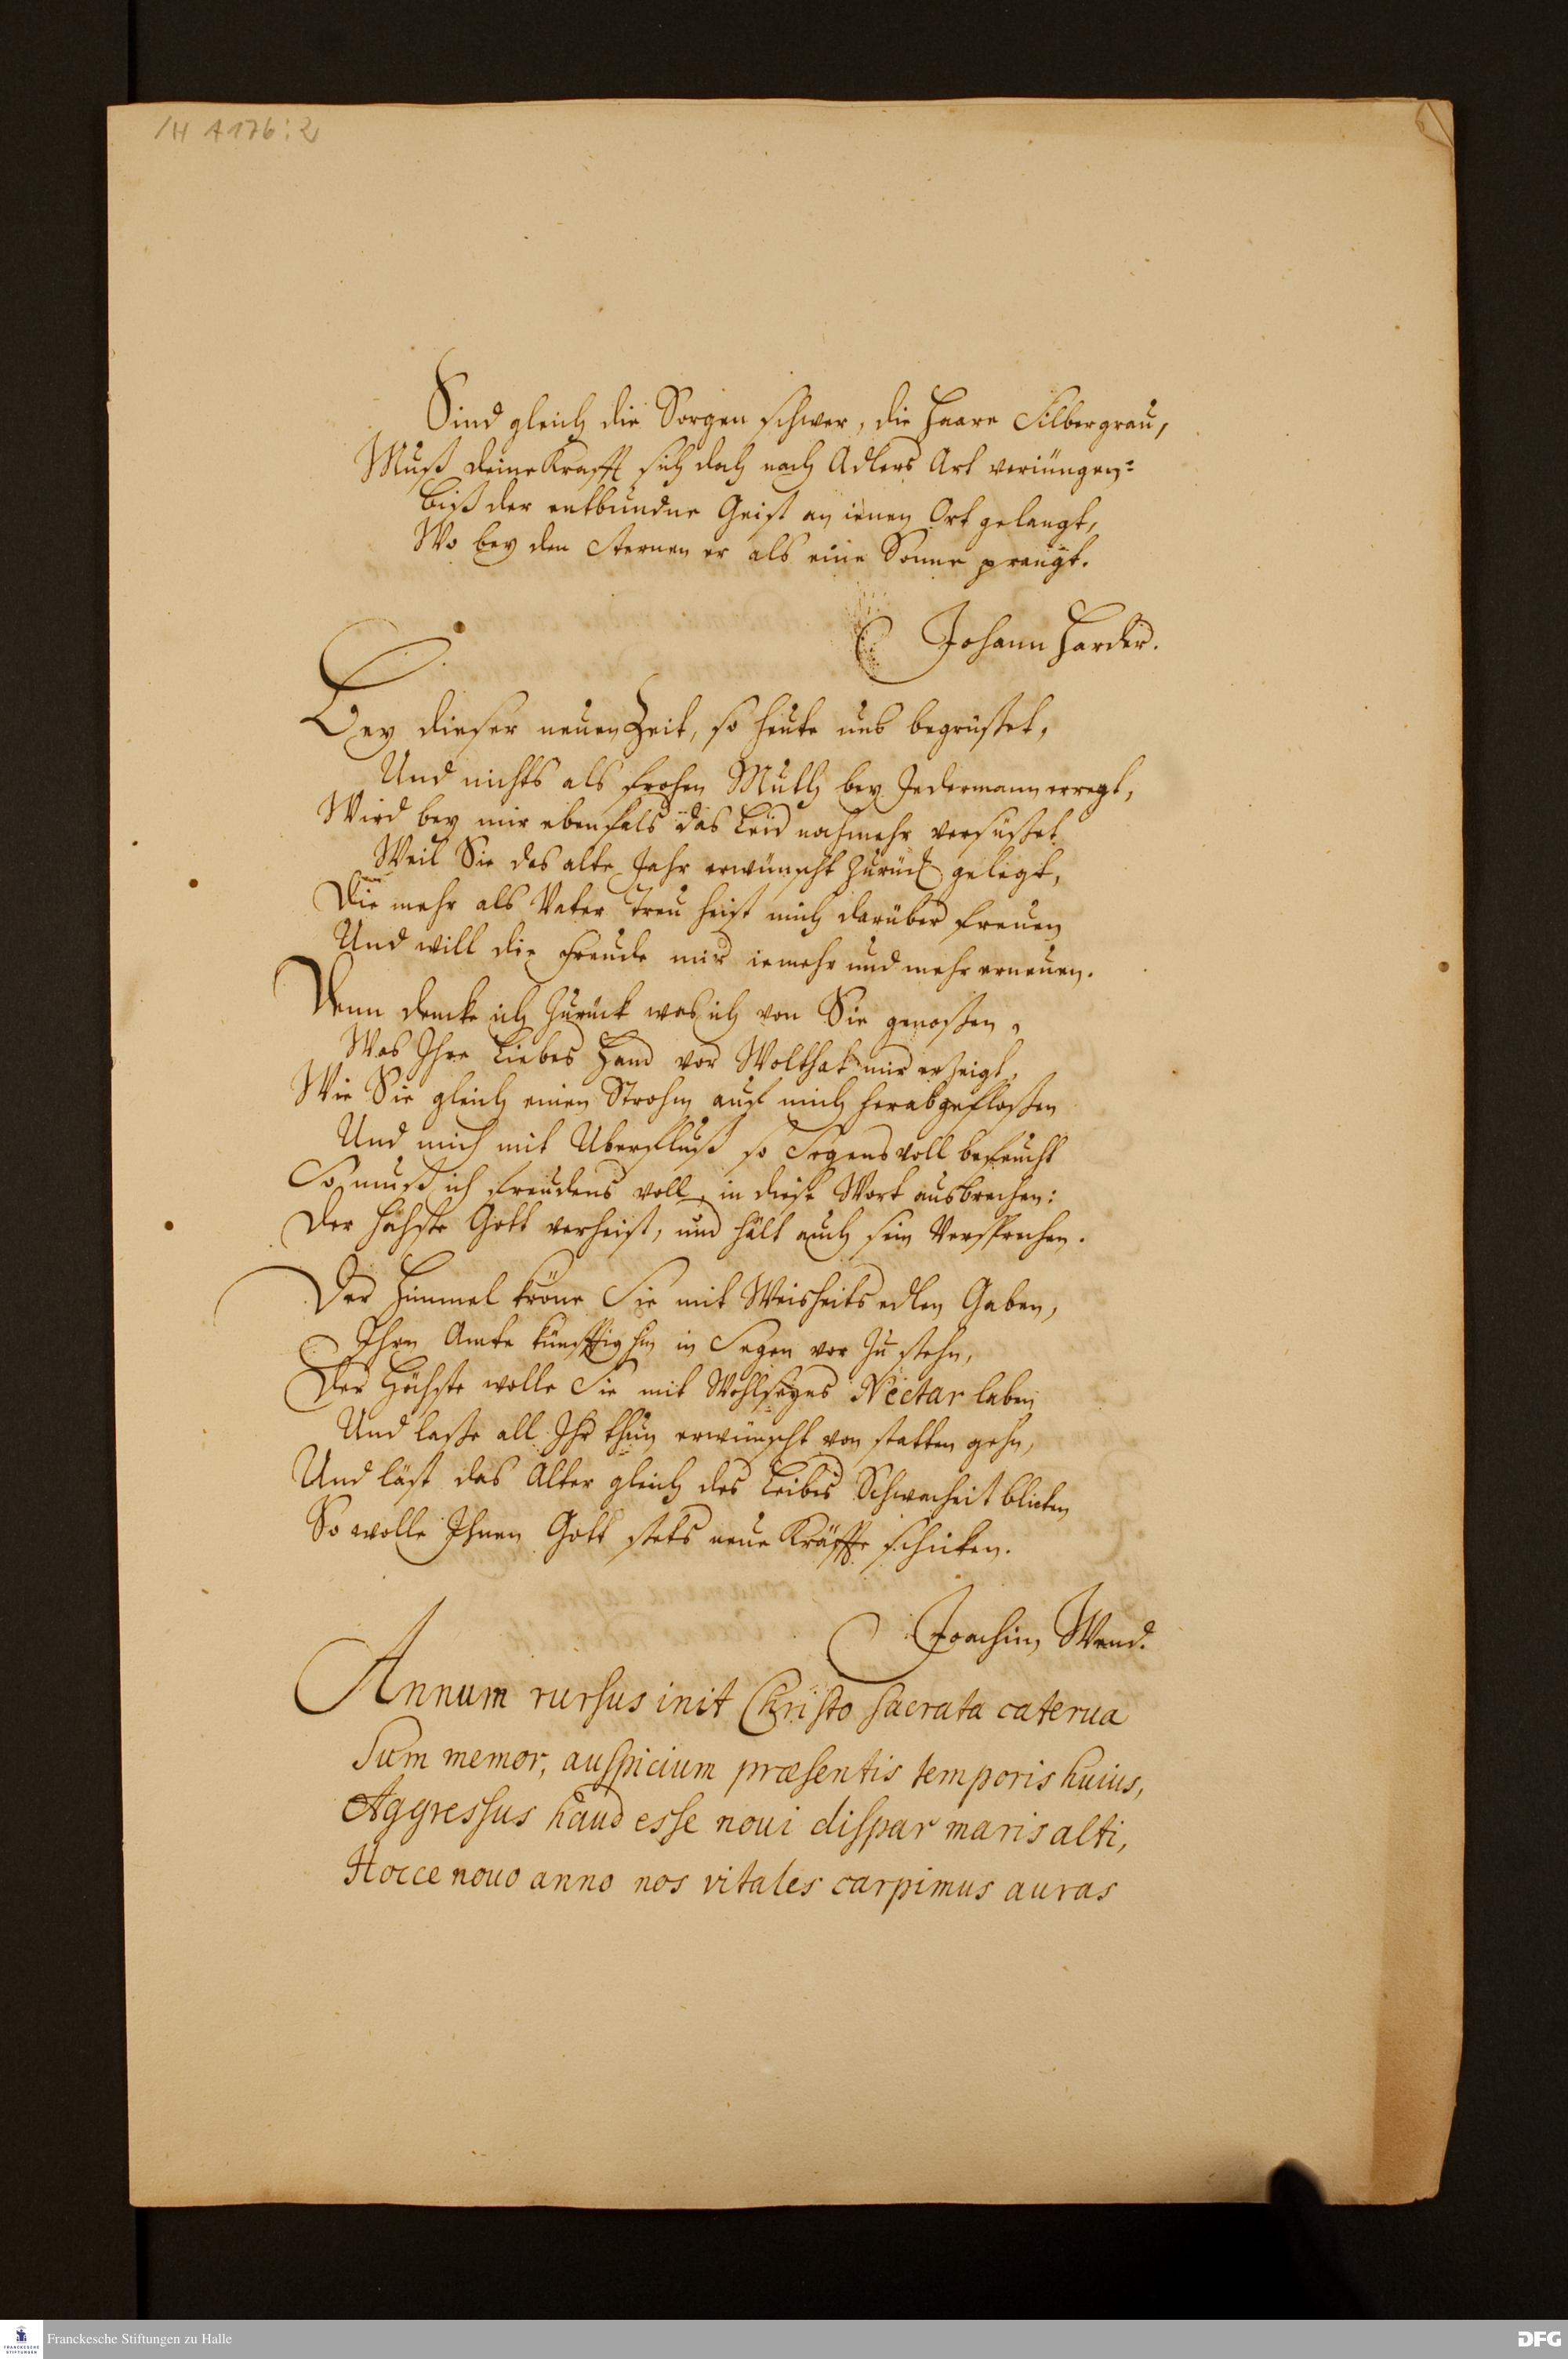 /H A 176 : 2
Sind gleich die Sorgen schwer, die Haare Silbergrau,
Muß deine Krafft sich doch nach Adlers Art veriüngen:
Biß der entbundne Geist an ienen Ort gelangt,
Wo bey den Sternen er als eine Sonne prangt.
Johann Harder.
Bey dieser neuen Zeit, so heute uns begrüßet,
Und nichts als frohen Muth bey Jedermann erregt,
Wird bey mir ebenfals das Leid nochmehr versüßet
Weil Sie das alte Jahr erwünscht zurück gelegt,
Die mehr als Vater Treu heist mich darüber freuen
Und will die Freude mir iemehr und mehr erneuen.
Denn dencke ich zurück was ich von Sie genoßen,
Was Ihre Liebes Hand vor Wolthat mir erzeigt,
Wie Sie gleich einen Strohm auf mich herabgefloßen
Und mich mit Uberfluß so Segensvoll befeucht
So muß ich freudens voll, in diese Wort ausbrechen:
Der höchste Gott verheist, und hält auch sein Versprechen.
Der Himmel kröne Sie mit Weisheits edlen Gaben,
Ihren Amte künfftighin in Segen vor zu stehn,
Der Höchste wolle Sie mit Wohlseyns Nectar laben
Und laße all Ihr thun erwünscht von statten gehn,
Und läst das Alter gleich des Leibes Schwacheit blicken
So wolle Ihnen Gott stets neue Kräffte schicken.
Joachim Wend.
Annum rursus init Christo sacrata caterua
Sum memor, auspicium præsentis temporis huius,
Aggressus haud esse noui dispar maris alti,
Hocce nouo anno nos vitales carpimus auras
Franckesche Stiftungen zu Halle
DFG